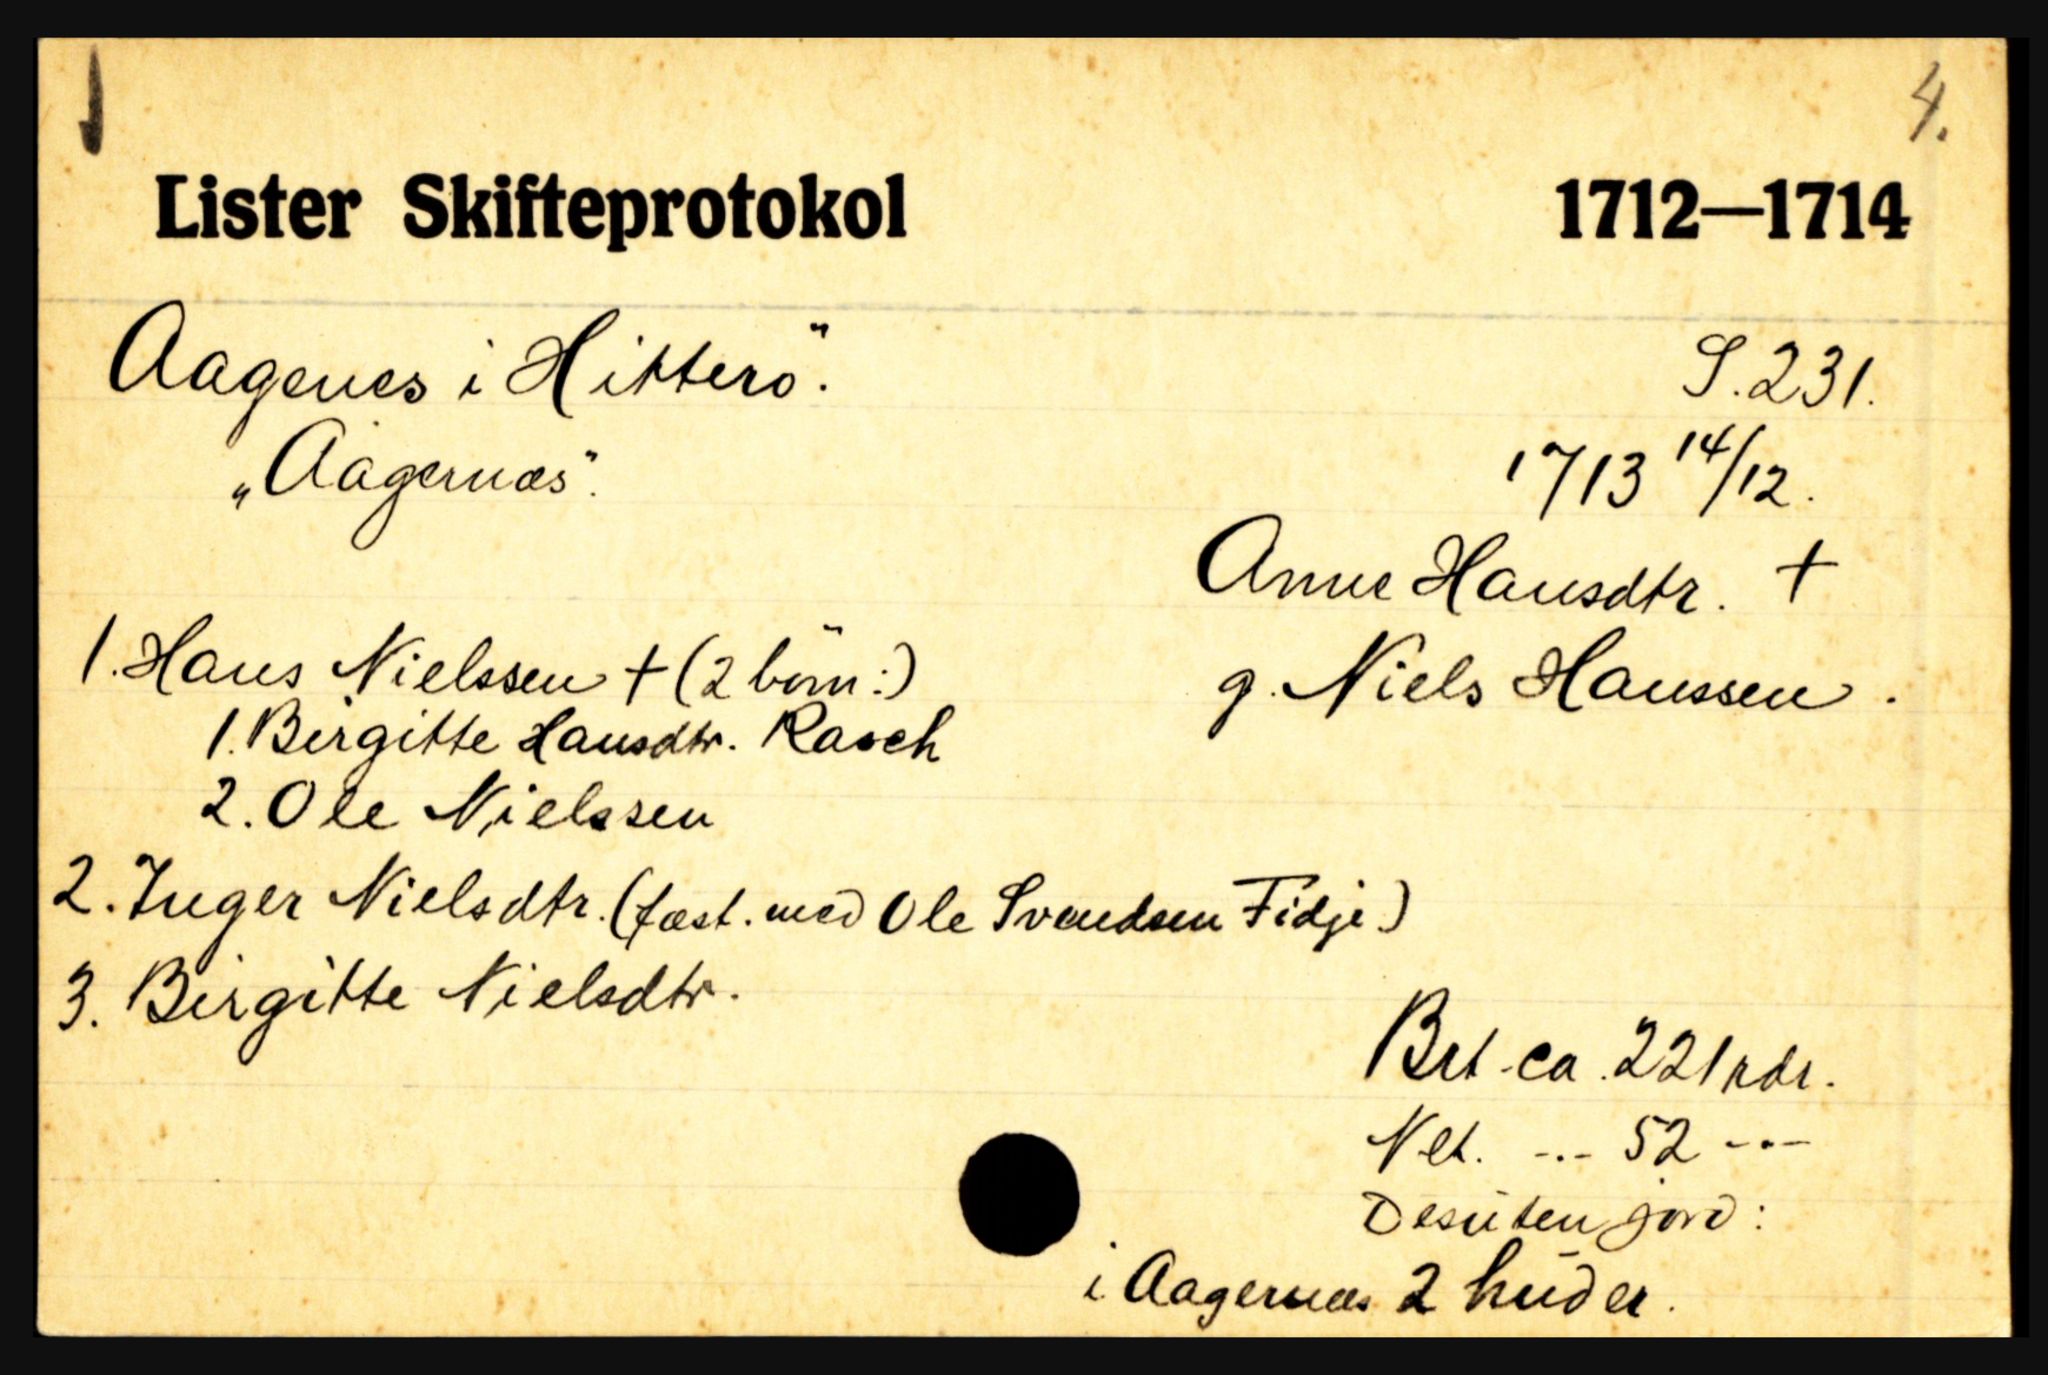 4.
Lister Skifteprotokol 1712—1714
Aagenes i Hitterö.
S. 231.
„Aagernæs".
1713 14/12.
Anne Hansdtr. +
g. Niels Hanssen.
1. Hans Nielssen + (2 börn:)
1. Birgitte Hansdtr. Rasch
2. Ole Nielssen
2. Inger Nielsdtr. (fæst. med Ole Svendsen Fidje.)
3. Birgitte Nielsdtr.
Brt. ca. 221 rdr.
Net. -.- 52 -.-
Desuten jord:
i Aagernæs 2 huder.